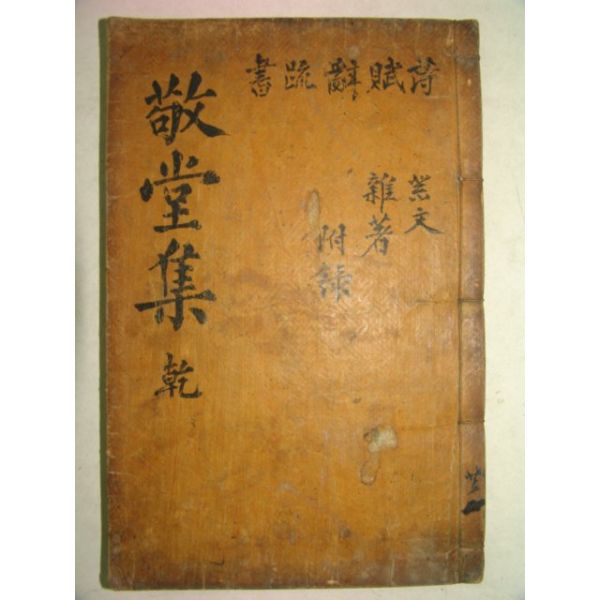 詩賦辭疏書
祭文
雜著
附錄
敬堂集 乾